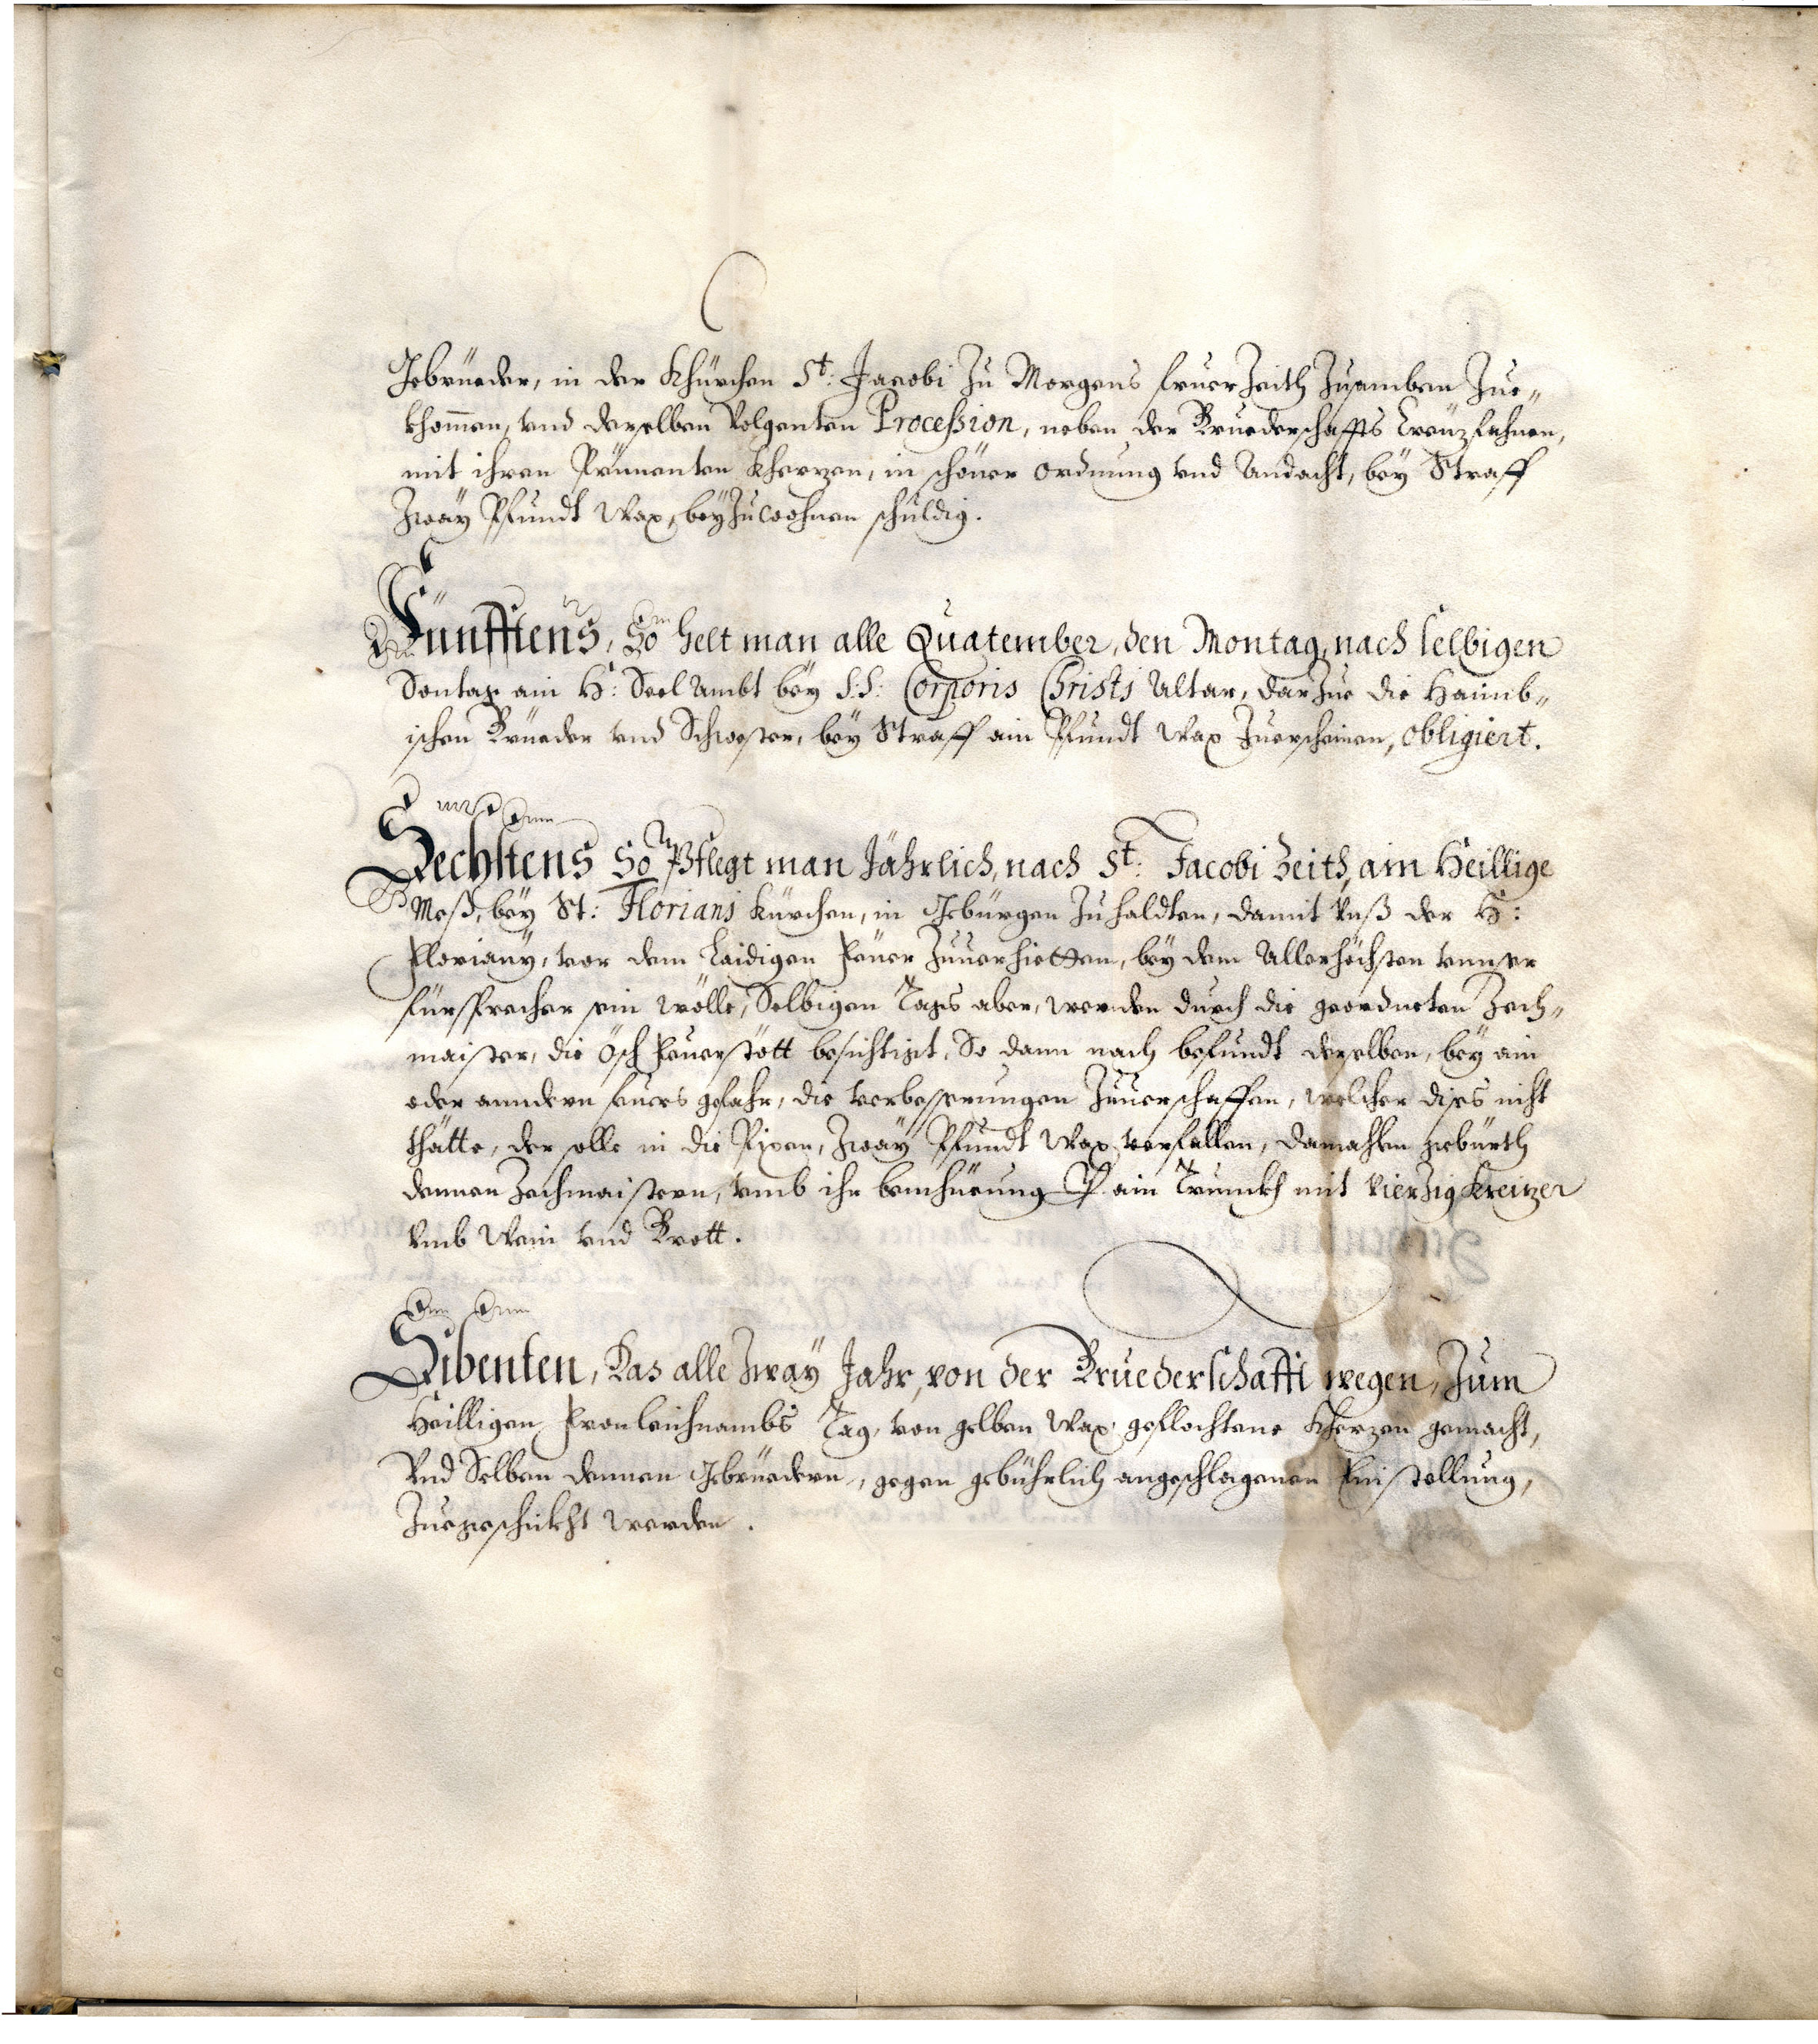 Gebrüeder, in der Khürchen St: Jacobi Zu Morgens frueer Zeith Zusamben Zue„
khom̃en, vnd derselben Volgenten Proceßion, neben der Bruederschaffts Creüzfahnen,
mit ihren Prünenten Kherzen, in schöner ordnung vnd Andacht, bey Straff
Zwaÿ Pfundt Wax, beÿZuwohnen schuldig.
Fünfftens, So helt man alle Quatember, den Montag, nach selbigen
Sontag ain H: Seel Ambt beÿ S:S: Corporis Christi Altar, darZue die Haimb„
ischen Brüeder vnd Schwester, beÿ Straff ain Pfundt Wax Zuerscheinen, obligiert.
Sechstens So Pflegt man Jährlich, nach St: Jacobi Zeith, ain Heillige
Meß, beÿ St: Florians Kürchen, in Gebürgen Zuhaldten, damit Vnß der H:
Florianÿ, vor dem Laidigen feüer Zuuerhietten, beÿ dem Allerhöchsten vnnser
fürsprecher sein wölle, Selbigen Tags aber, werden durch die geordneten Zech„
maister, die Ösch feuerstött besichtigt, So dann nach befundt derselben, beÿ ain
oder anndern feuers gefahr, die verbesserungen Zuuerschaffen, welcher dises nicht
thätte, der solle in die Pixen, Zwaÿ Pfundt Wax verfallen, damahlen gebürth
dennen Zechmaistern, vmb ihr bemhüeung ain Trunckh mit vierzig Kreitzer
vmb Wein vnd Brott.
Sibenten, Das alle Zwaÿ Jahr, von der Bruederschafft wegen, Zum
Heilligen fronleichnambs Tag, von gelben Wax geflochtene Kherzen gemacht,
Vnd Selben dennen Gebrüedern, gegen gebührlich angeschlagenen Einstellung,
Zuegeschickht werden.